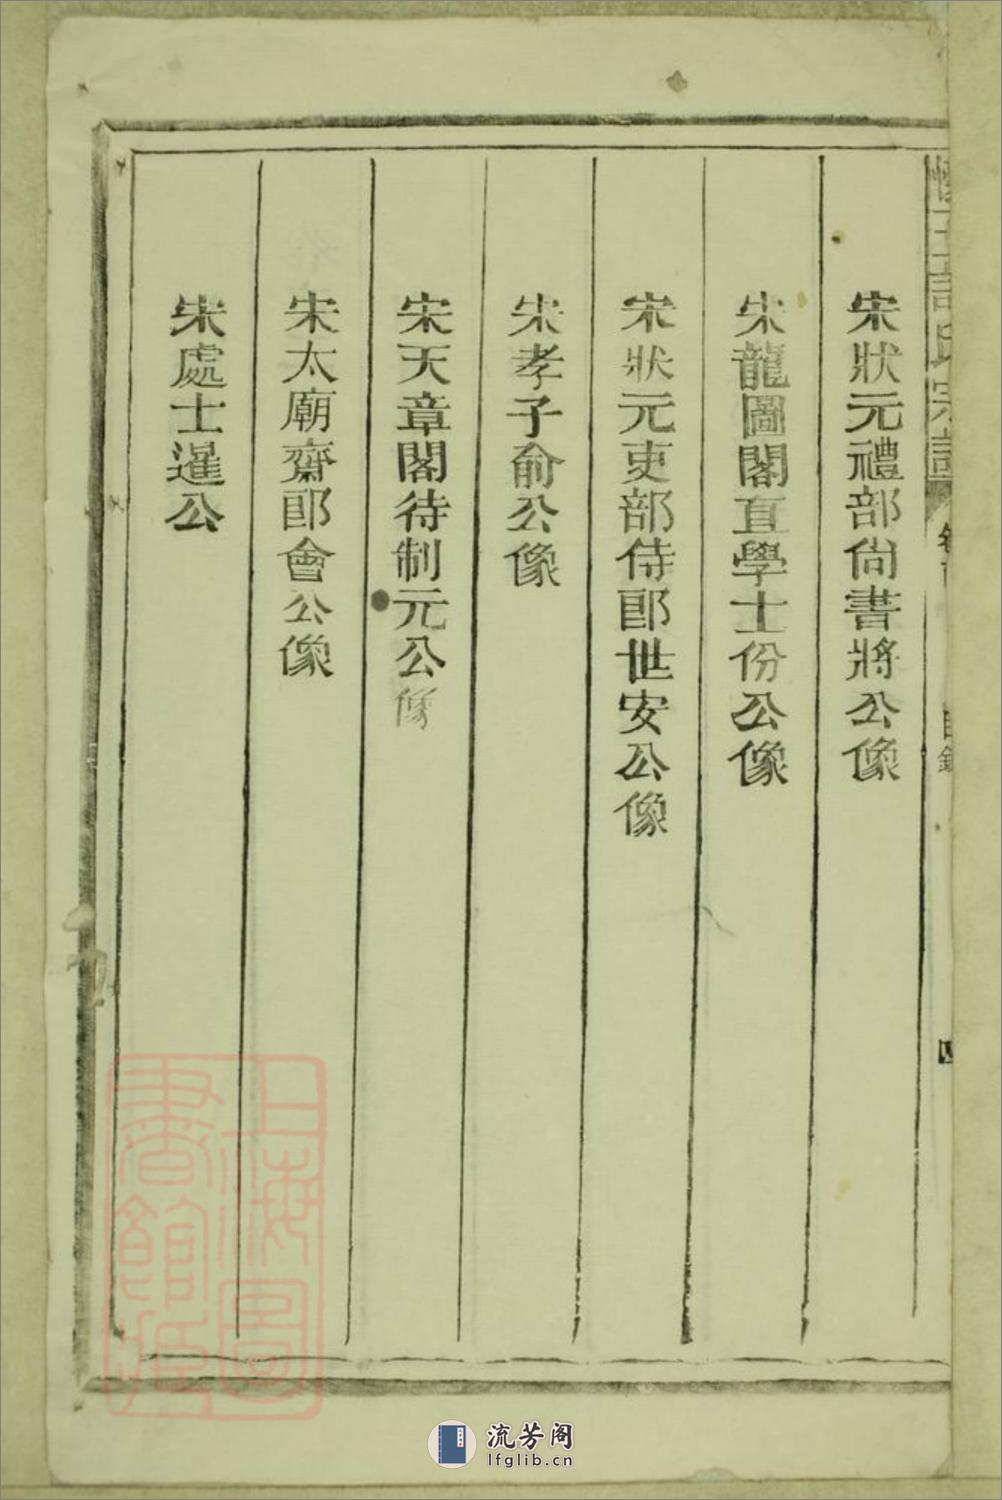 宋狀元禮部尙書將公像
宋龍圖閣直學士份公像
宋狀元吏部侍郎世安公像
宋孝子俞公像
宋天章閣待制元公像
宋太廟齋郎會公像
宋處士暹公
許氏宗譜
目錄
四
上海圖書館藏
流芳阁
lfglib.cn